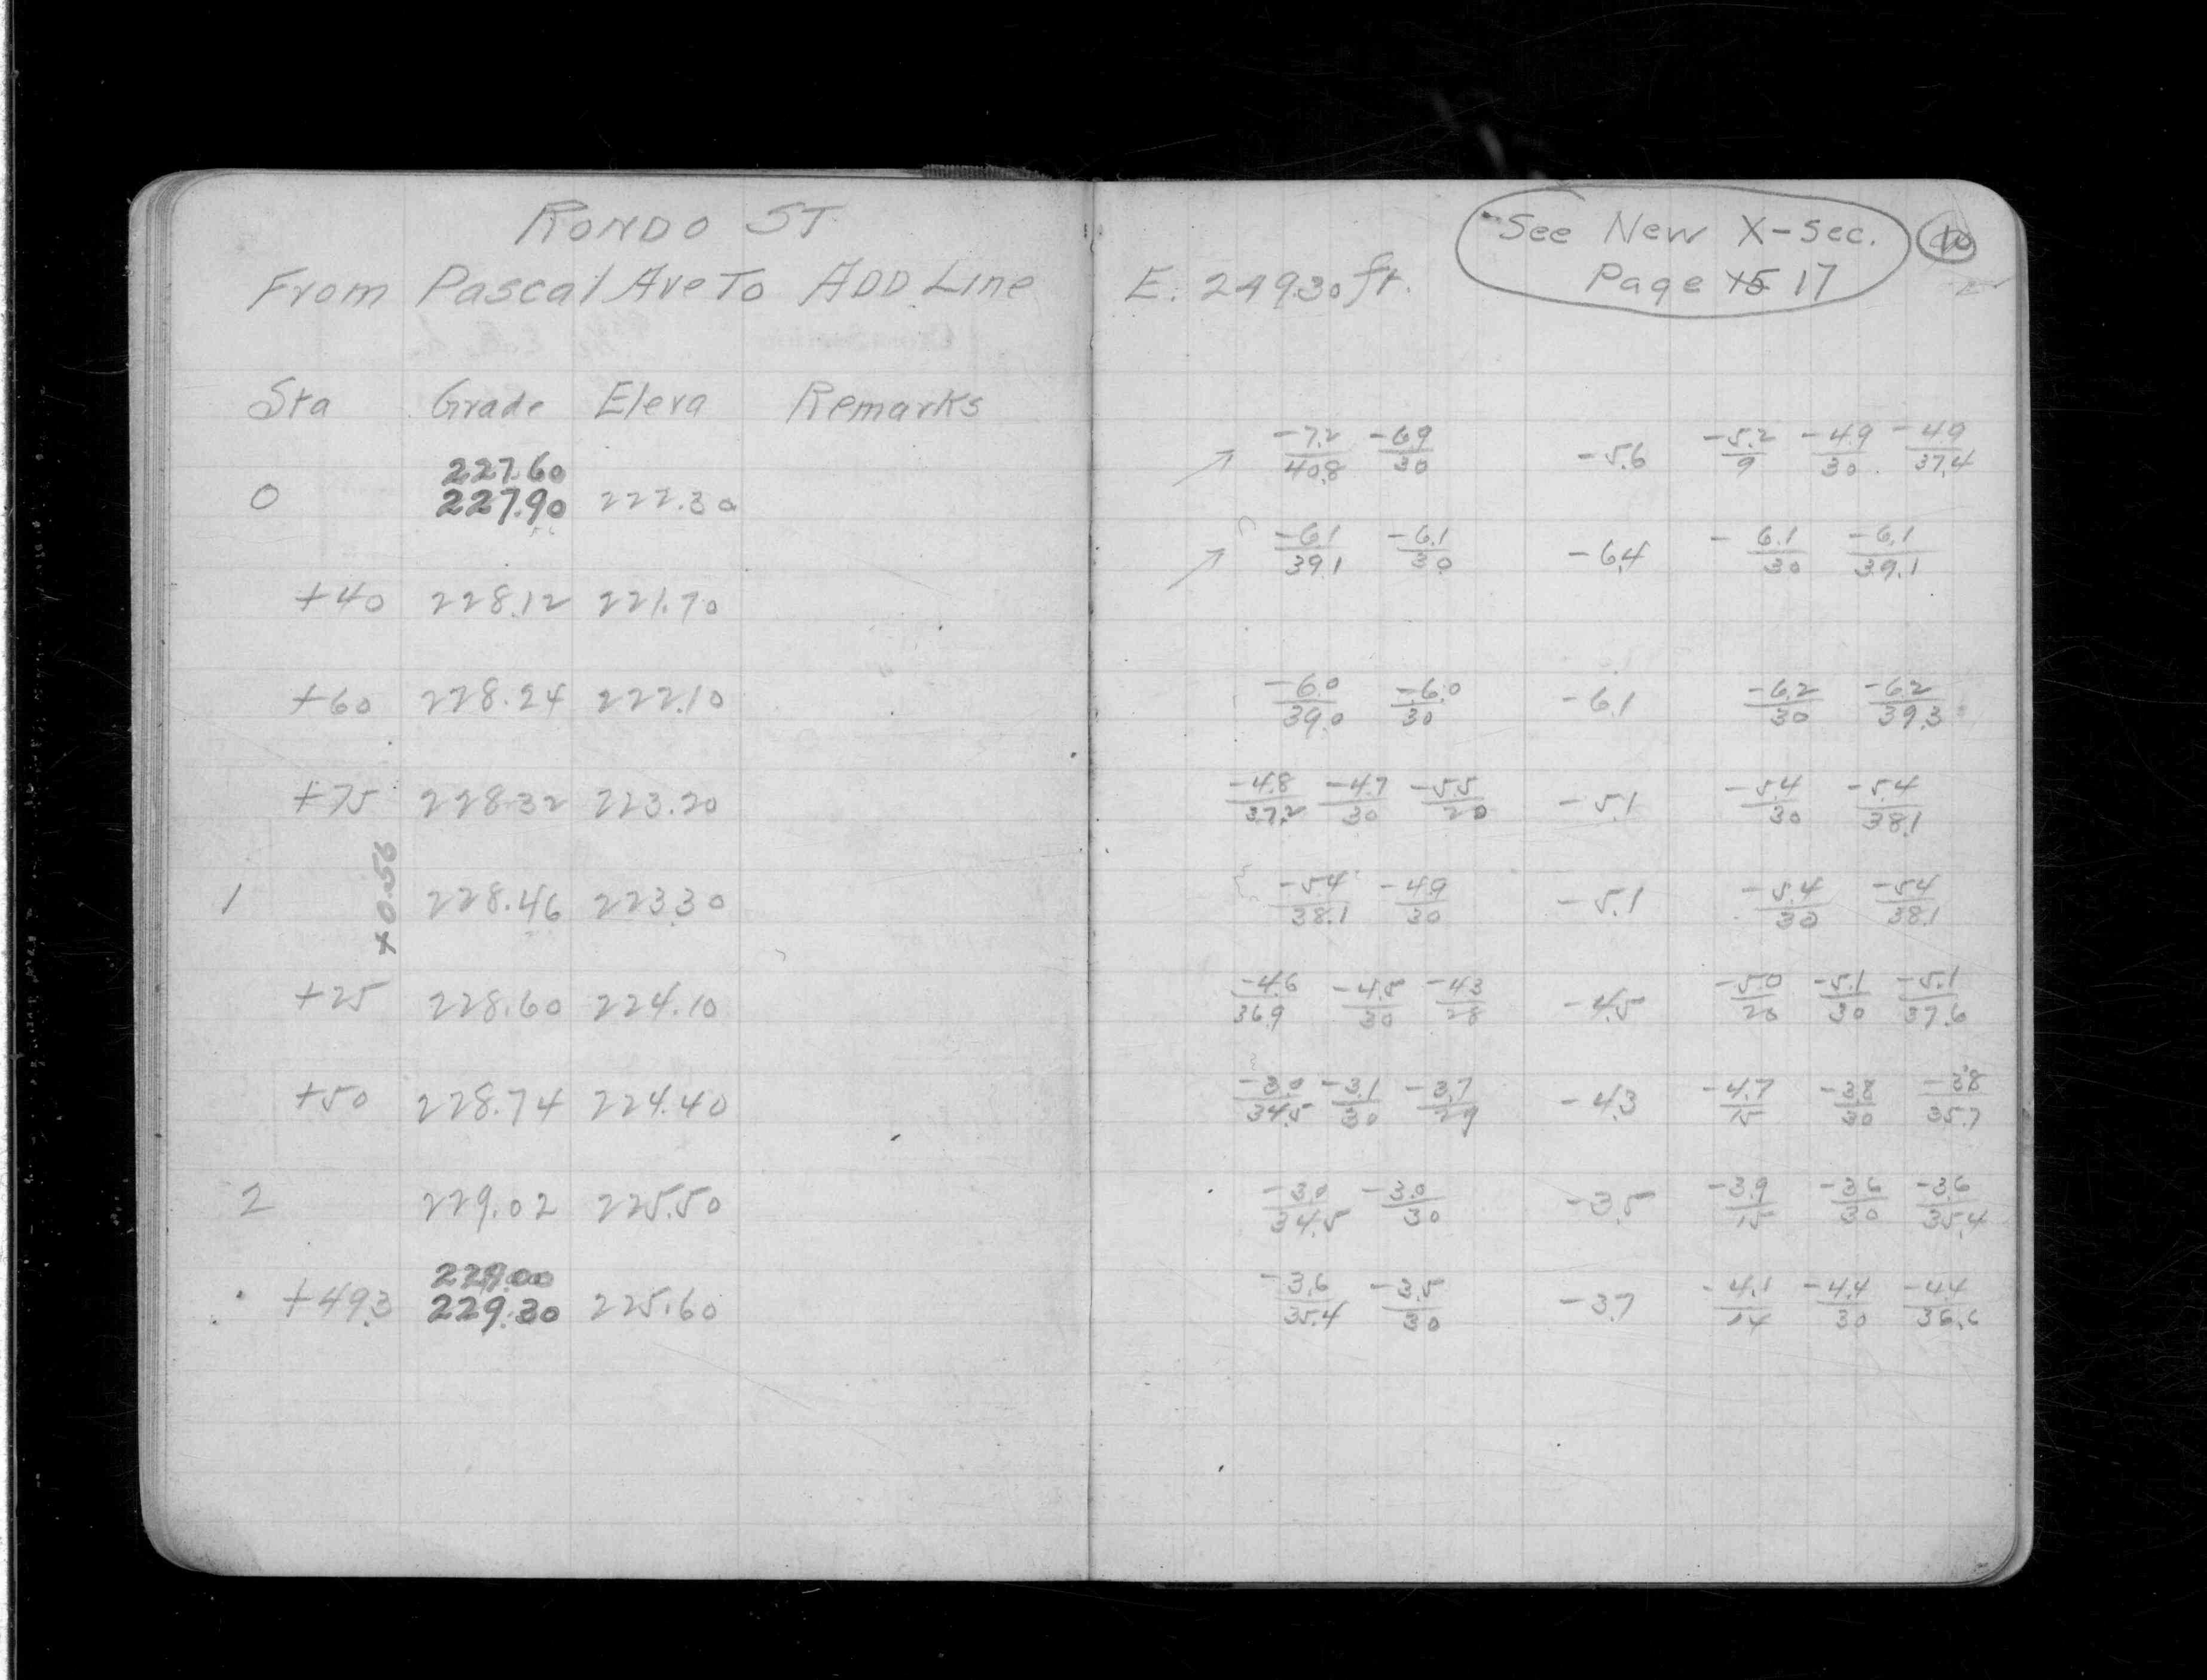 RONDO ST.
From Pascal Ave To ADD. Line E. 249.30 ft.
See New X-Sec.
Page 15 17
10
Sta Grade Eleva Remarks
227.60
0 227.90 222.30 -7.2/40.8 -6.9/30 -5.6 -5.2/9 -4.9/30 -4.9/37.4
+40 228.12 221.70 -6.1/39.1 -6.1/30 -6.4 -6.1/30 -6.1/39.1
+60 228.24 222.10 -6.0/39.0 -6.0/30 -6.1 -6.2/30 -6.2/39.3
+75 228.32 223.20 -4.8/37.2 -4.7/30 -5.5/20 -5.1 -5.4/30 -5.4/38.1
+0.56
1 228.46 223.30 -5.4/38.1 -4.9/30 -5.1 -5.4/30 -5.4/38.1
+25 228.60 224.10 -4.6/36.9 -4.5/30 -4.3/28 -4.5 -5.0/20 -5.1/30 -5.1/37.6
+50 228.74 224.40 -3.0/34.5 -3.1/30 -3.7/29 -4.3 -4.7/15 -3.8/30 -3.8/35.7
2 229.02 225.50 -3.0/34.5 -3.0/30 -3.5 -3.9/15 -3.6/30 -3.6/35.4
229.00
+49.3 229.30 225.60 -3.6/35.4 -3.5/30 -3.7 -4.1/14 -4.4/30 -4.4/36.6